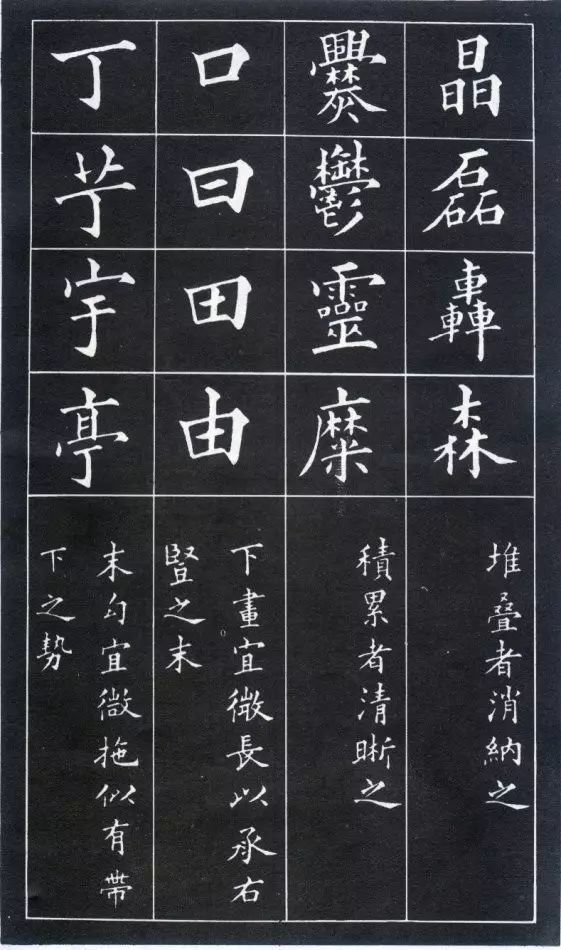 晶磊轟森
堆叠者消納之
爨鬱靈糜
積累者清晰之
口曰田由
下畫宜微長以承右
豎之末
丁艼宇亭
末勾宜微拖似有帶
下之勢